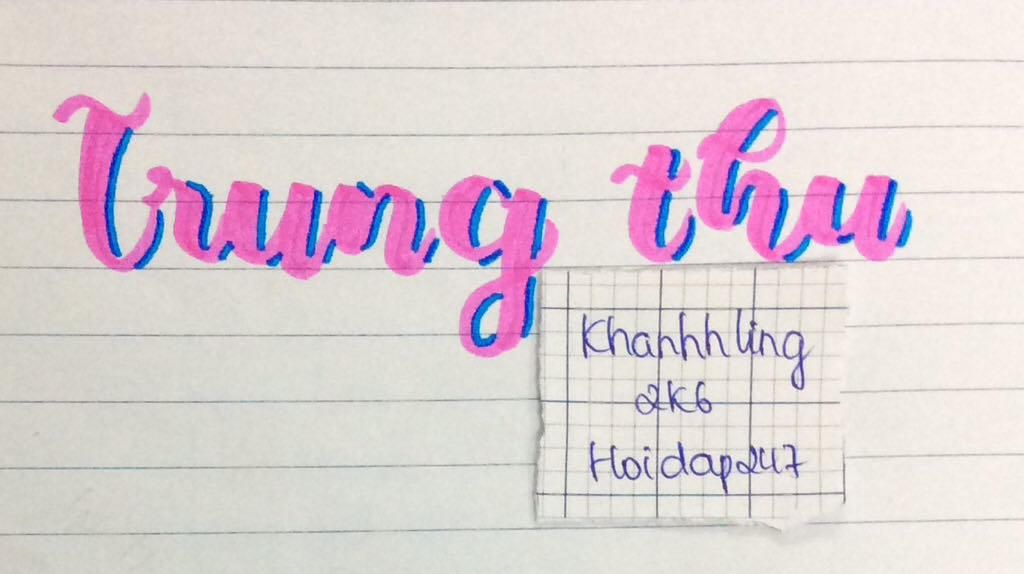 Trung thu
Khanhhling
2K6
Hoidap247